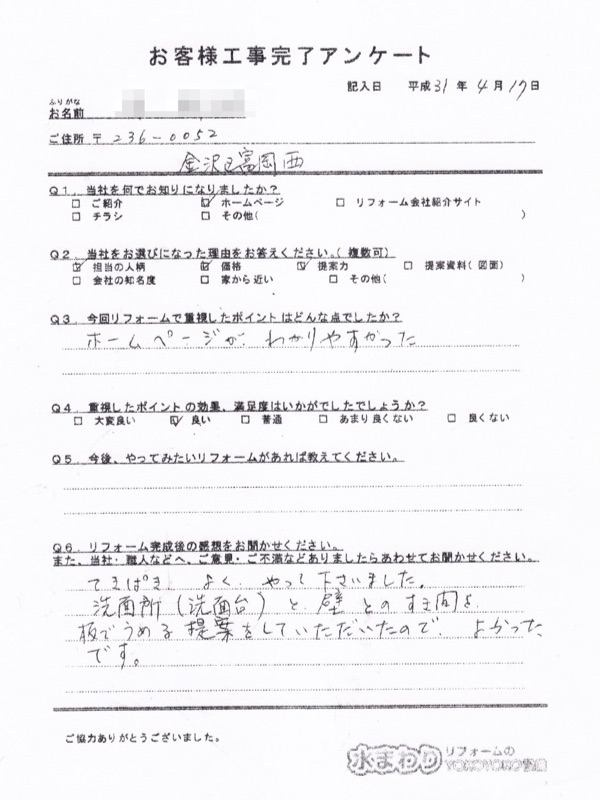 お客様工事完了アンケート
記入日 平成31年4月17日
ふりがな
お名前
ご住所 〒236-0052
金沢区富岡西
Q1. 当社を何でお知りになりましたか?
□ ご紹介 ☑ ホームページ □ リフォーム会社紹介サイト
□ チラシ □ その他( )
Q2. 当社をお選びになった理由をお答えください。(複数可)
☑ 担当の人柄 ☑ 価格 ☑ 提案力 □ 提案資料(図面)
□ 会社の知名度 □ 家から近い □ その他( )
Q3. 今回リフォームで重視したポイントはどんな点でしたか?
ホームページが、わかりやすかった
Q4. 重視したポイントの効果、満足度はいかがでしたでしょうか?
□ 大変良い ☑ 良い □ 普通 □ あまり良くない □ 良くない
Q5. 今後、やってみたいリフォームがあれば教えてください。
Q6. リフォーム完成後の感想をお聞かせください。
また、当社・職人などへ、ご意見・ご不満などありましたらあわせてお聞かせください。
てきぱき、よく、やって下さいました。
洗面所(洗面台)と壁とのすき間を、
板でうめる提案をしていただいたので、よかった
です。
ご協力ありがとうございました。
水まわり リフォームの
YOKOYOKO設備